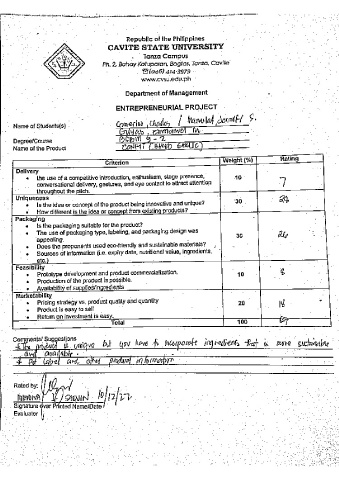 Republic of the Philippines
CAVITE STATE UNIVERSITY
Tanza Campus
Ph. 2, Bahay Katuparan, Bagtas, Tanza, Cavite
(046) 414-3979
www.cvsu.edu.ph
Department of Management
ENTREPRENEURIAL PROJECT
Name of Students(s)
Degree/Course
Name of the Product
Criterion Weight (%) Rating
Delivery
• the use of a competitive introduction, enthusiasm, stage presence, conversational delivery, gestures, and eye contact to attract attention throughout the pitch. 10 7
Uniqueness
• Is the idea or concept of the product being innovative and unique? 30
• How different is the idea or concept from existing products?
Packaging
• Is the packaging suitable for the product?
• The use of packaging type, labeling, and packaging design was appealing. 30 26
• Does the proponents used eco-friendly and sustainable materials?
• Sources of information (i.e. expiry date, nutritional value, ingredients, etc.)
Feasibility
• Prototype development and product commercialization. 10 8
• Production of the product is possible.
• Availability of supplies/ingredients
Marketability
• Pricing strategy vs. product quality and quantity 20 18
• Product is easy to sell
• Return on investment is easy.
Total 100
Comments/ Suggestions
The product is unique but you have to incorporate ingredients that is more sustainable
and available.
Put label and other product information
Rated by:
10/12/22
Signature over Printed Name/Date
Evaluator